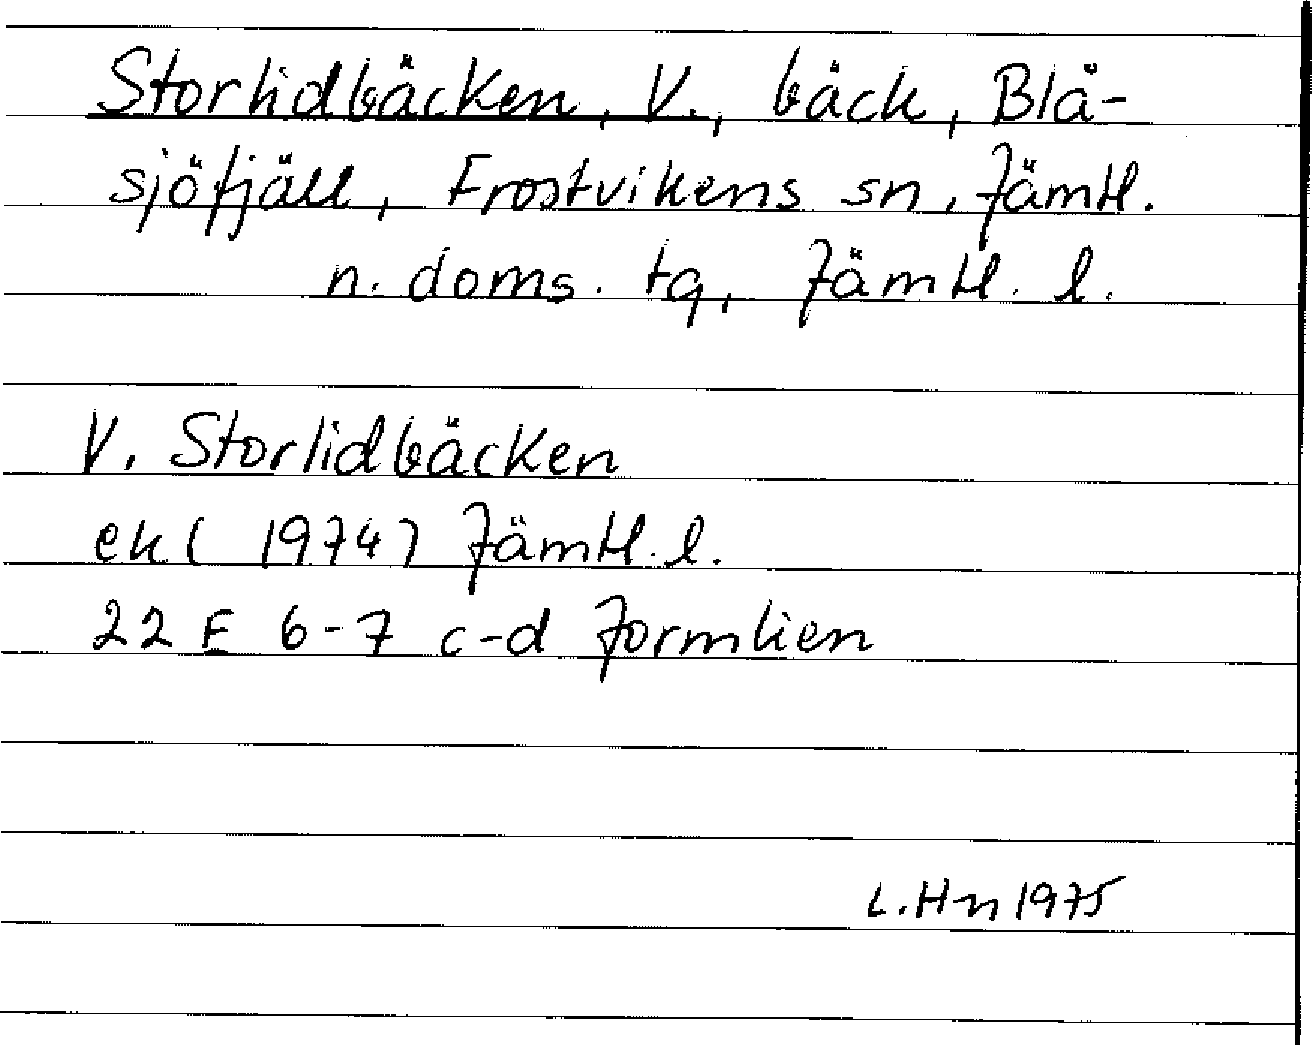 Storlidbäcken, V., bäck, Blå-
sjöfjäll, Frostvikens sn, Jämtl.
n. doms. tg, Jämtl. l.
V. Storlidbäcken
ek ( 1974) Jämtl. l.
22 E 6-7 c-d Jormlien
L. Hn 1975